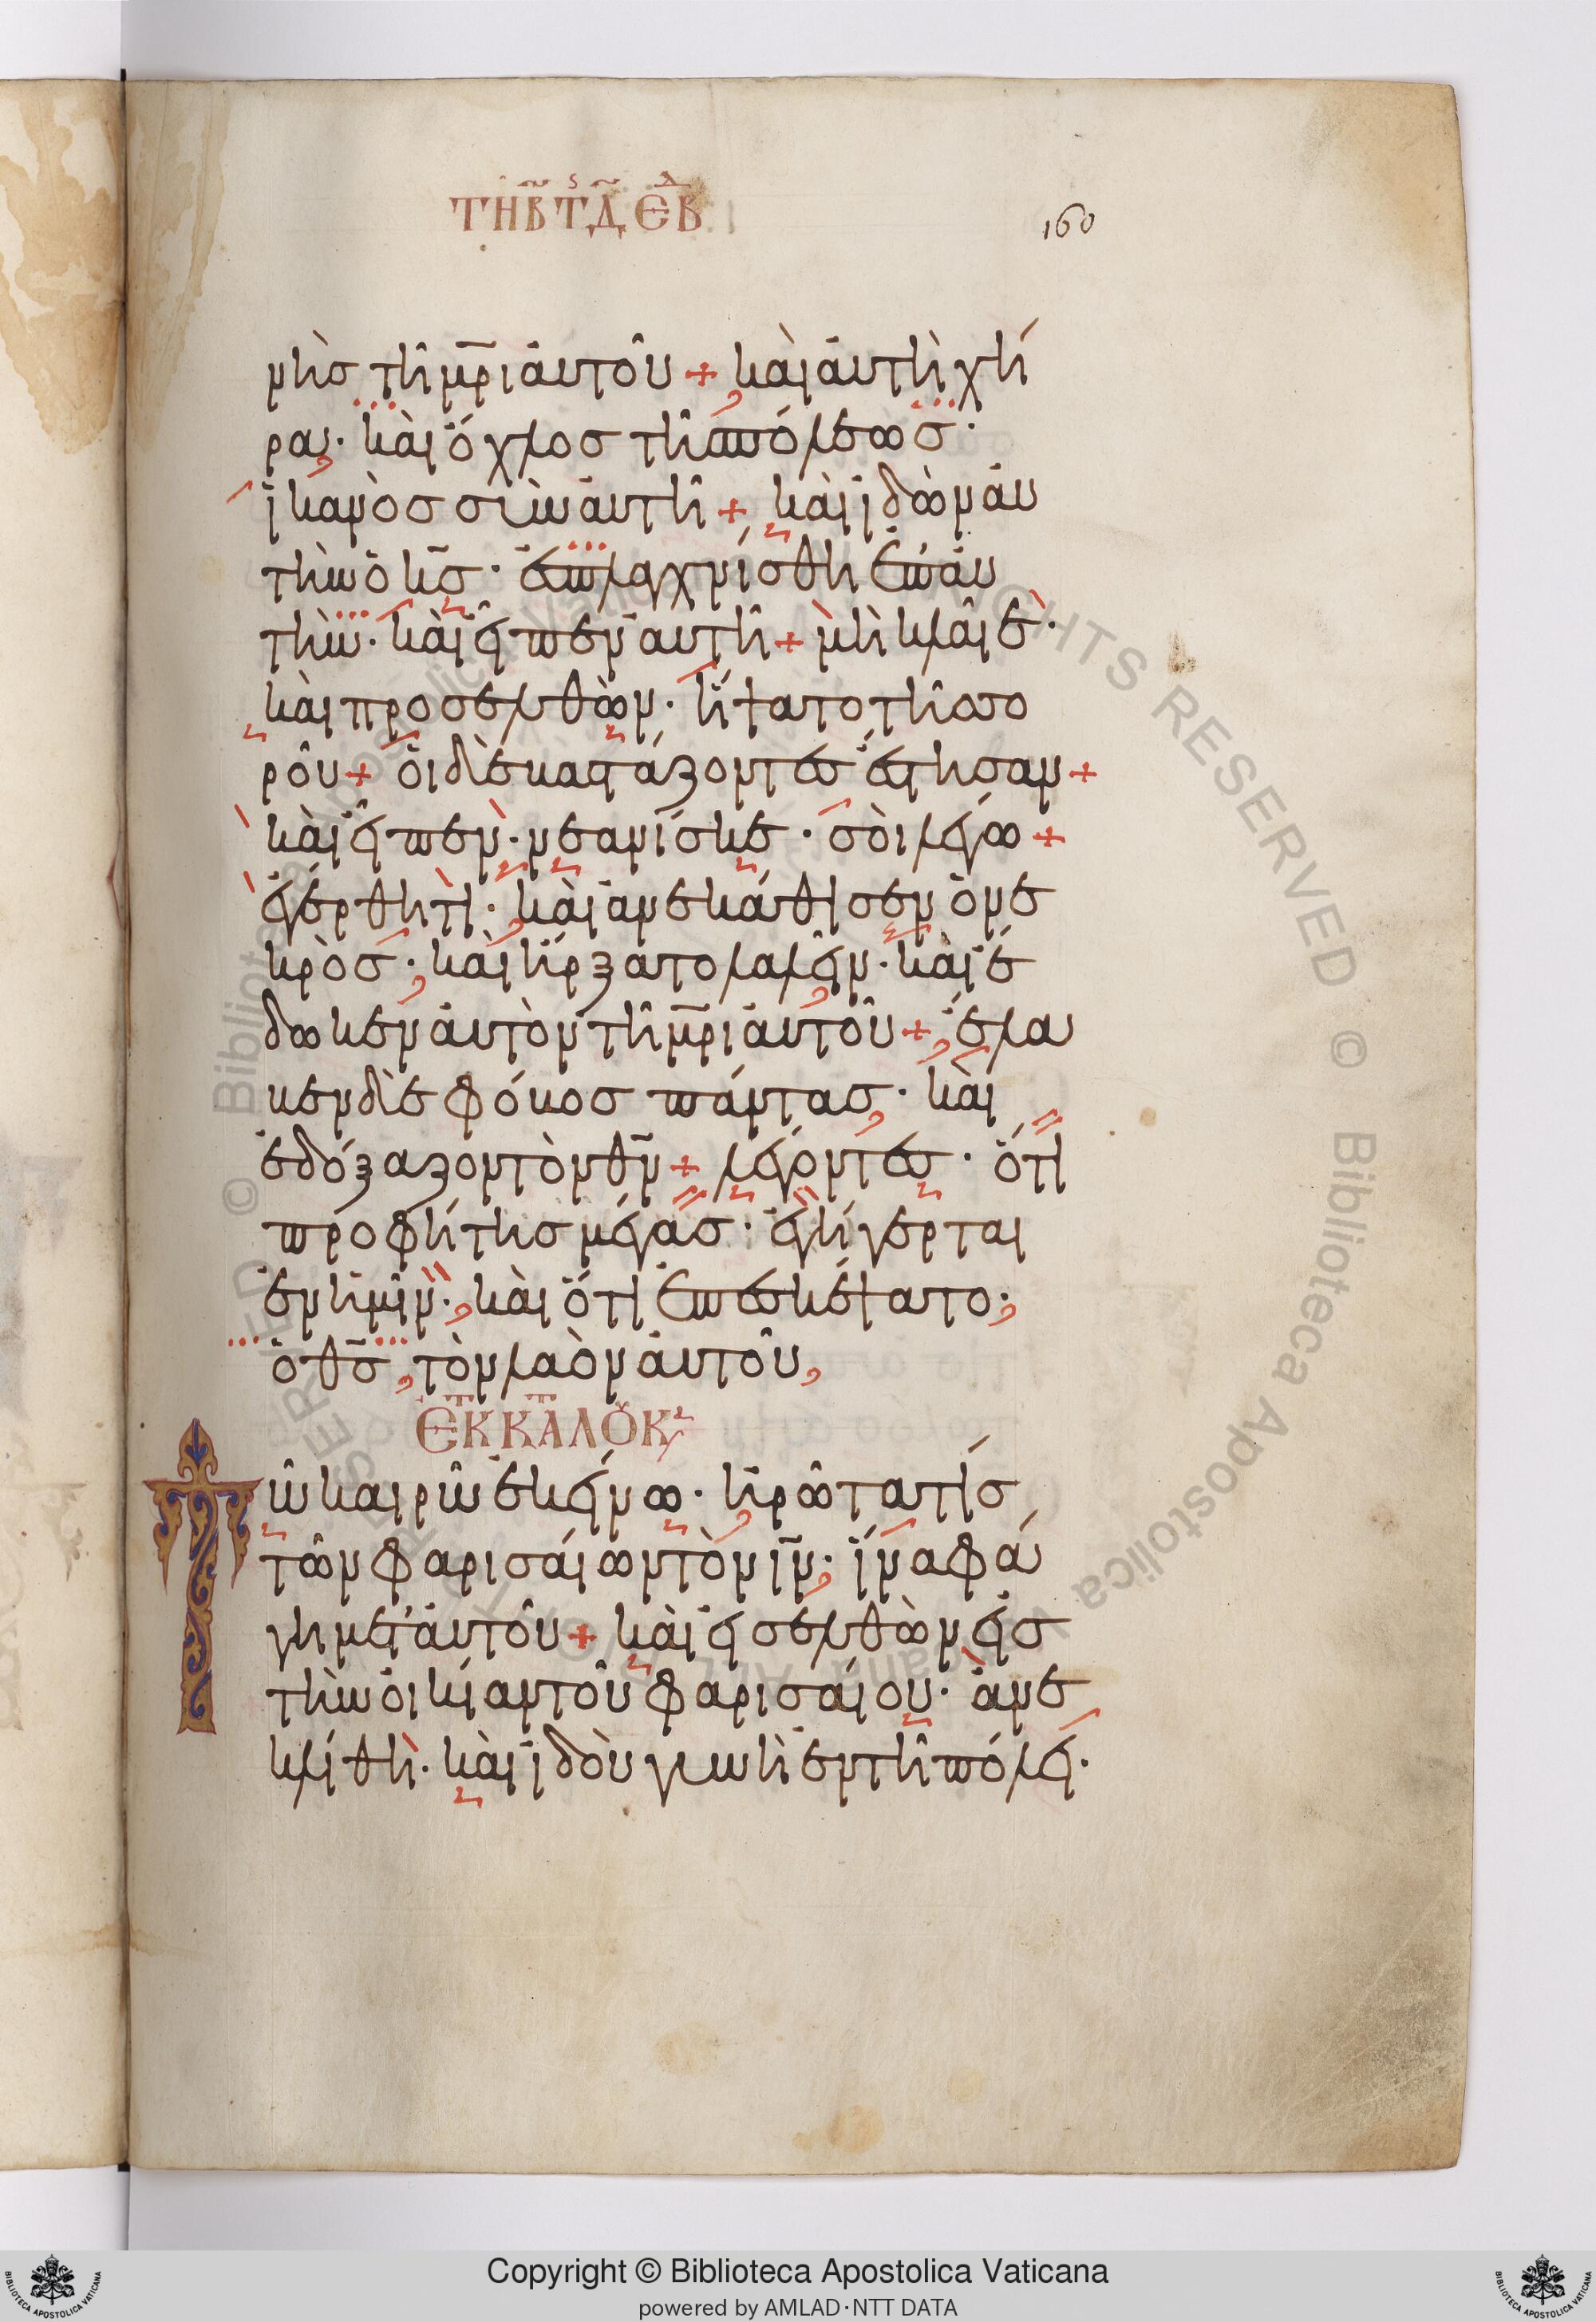 ΤΗ Β ΤΗΣ Δ ΕΒΔ
160
νὴσ τῆ μρ̅ι ἀυτοῦ + κὰι ἀυτὴ χή
ρα· κὰι ὄχλοσ τῆσ πόλεωσ·
ἱκανὸσ σὺν ἀυτῆ + κὰι ἰδὼν ἀυ
τὴν ὁ κσ̅· ἐσπλαχνίσθη ἐπ' ἀυ
τὴν· κὰι εἶπεν ἀυτῆ + μὴ κλᾶιε·
κὰι προσελθὼν· ἥψατο τῆσ σο
ροῦ + ὁι δὲ βαστάζοντεσ ἔστησαν +
κὰι εἶπεν· νεανίσκε· σὸι λέγω +
ἐγέρθητι· κὰι ἀνεκάθισεν ὁ νε
κρὸσ· κὰι ἤρξατο λαλεῖν· κὰι ἔ
δωκεν ἀυτὸν τῆ μρ̅ι ἀυτοῦ + ἔλα
βεν δὲ φόβοσ πάντασ· κὰι
ἐδόξαζον τὸν θν̅ + λέγοντεσ· ὅτι
προφήτησ μέγασ· ἐγήγερται
ἐν ἡμῖν· κὰι ὅτι ἐπεσκέψατο·
ὁ θσ̅ τὸν λαὸν ἀυτοῦ
ΕΚ Κ̅ΑΤ ΛΟΥΚ
Τῶ καιρῶ ἐκείνω· ἠρώτα τίσ
τῶν φαρισάιων τὸν ιν̅· ἵνα φά
γη μετ' ἀυτοῦ + κὰι εἰσελθὼν εἰσ
τὴν ὀικίαν τοῦ φαρισάιου· ἀνε
κλίθη· κὰι ἰδοὺ γυνὴ ἐν τῆ πόλει·
© Biblioteca Apostolica Vaticana ALL RIGHTS RESERVED
Copyright © Biblioteca Apostolica Vaticana
powered by AMLAD·NTT DATA